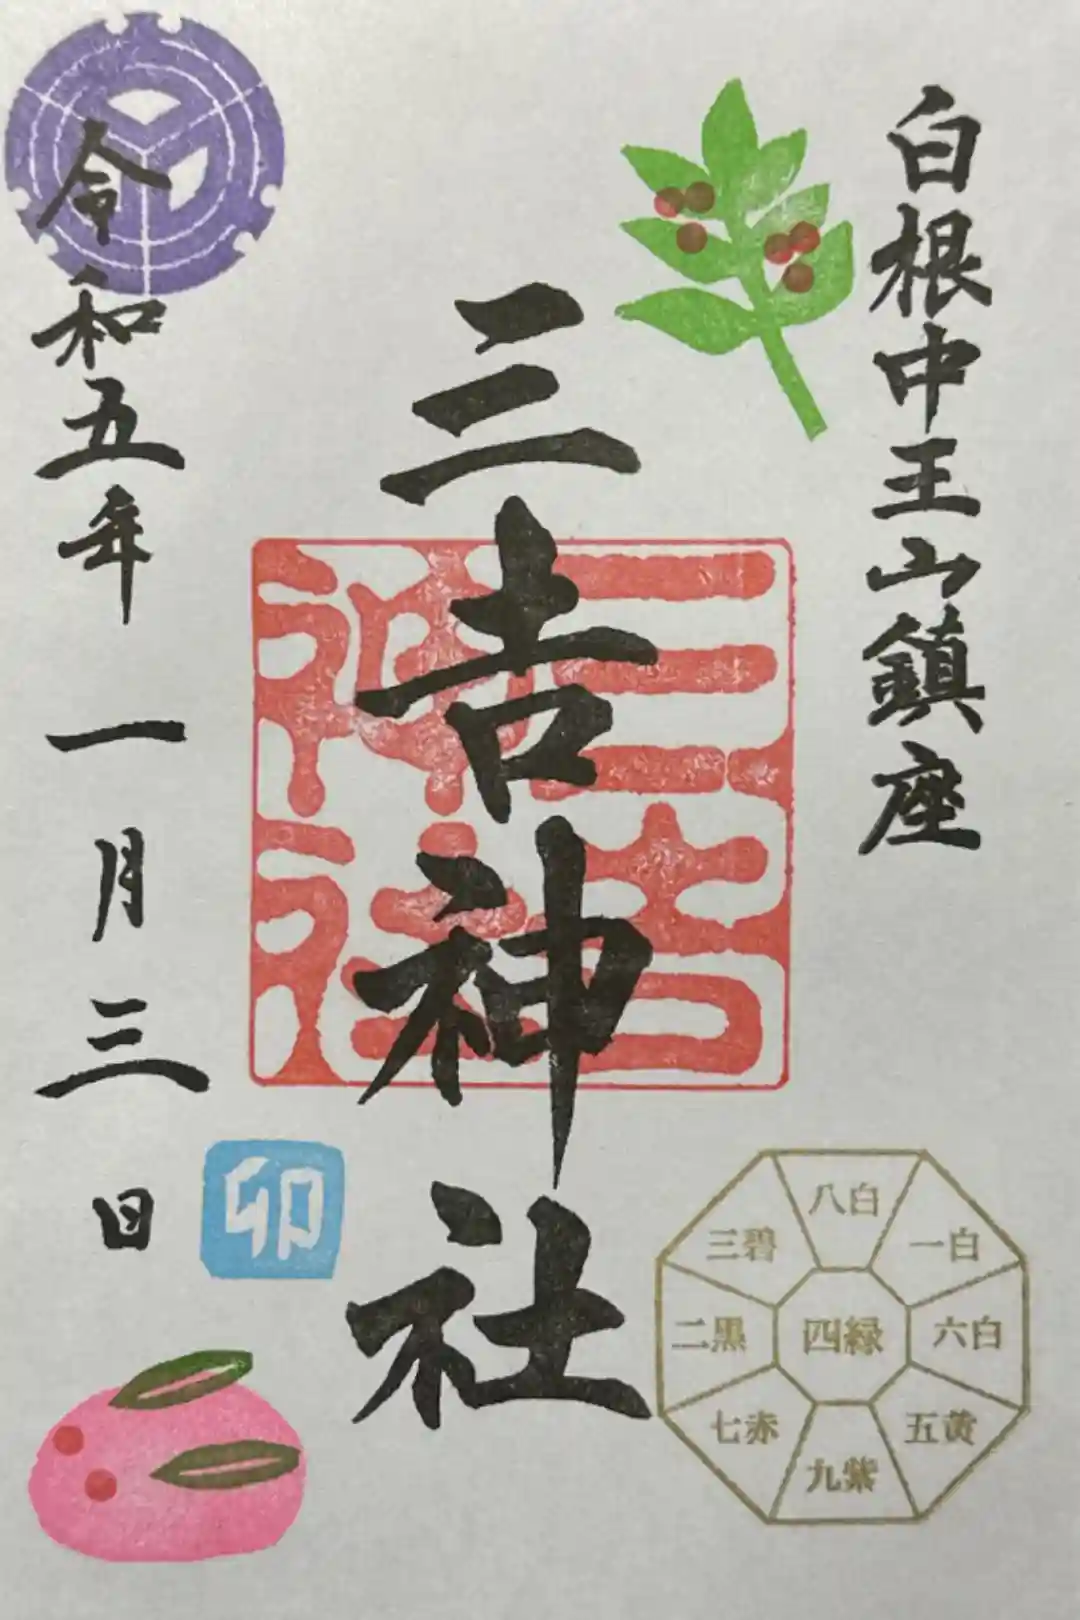 白根中王山鎮座
三吉神社
三吉神社
令和五年一月三日
卯
八白
三碧
一白
二黒
四緑
六白
七赤
五黄
九紫